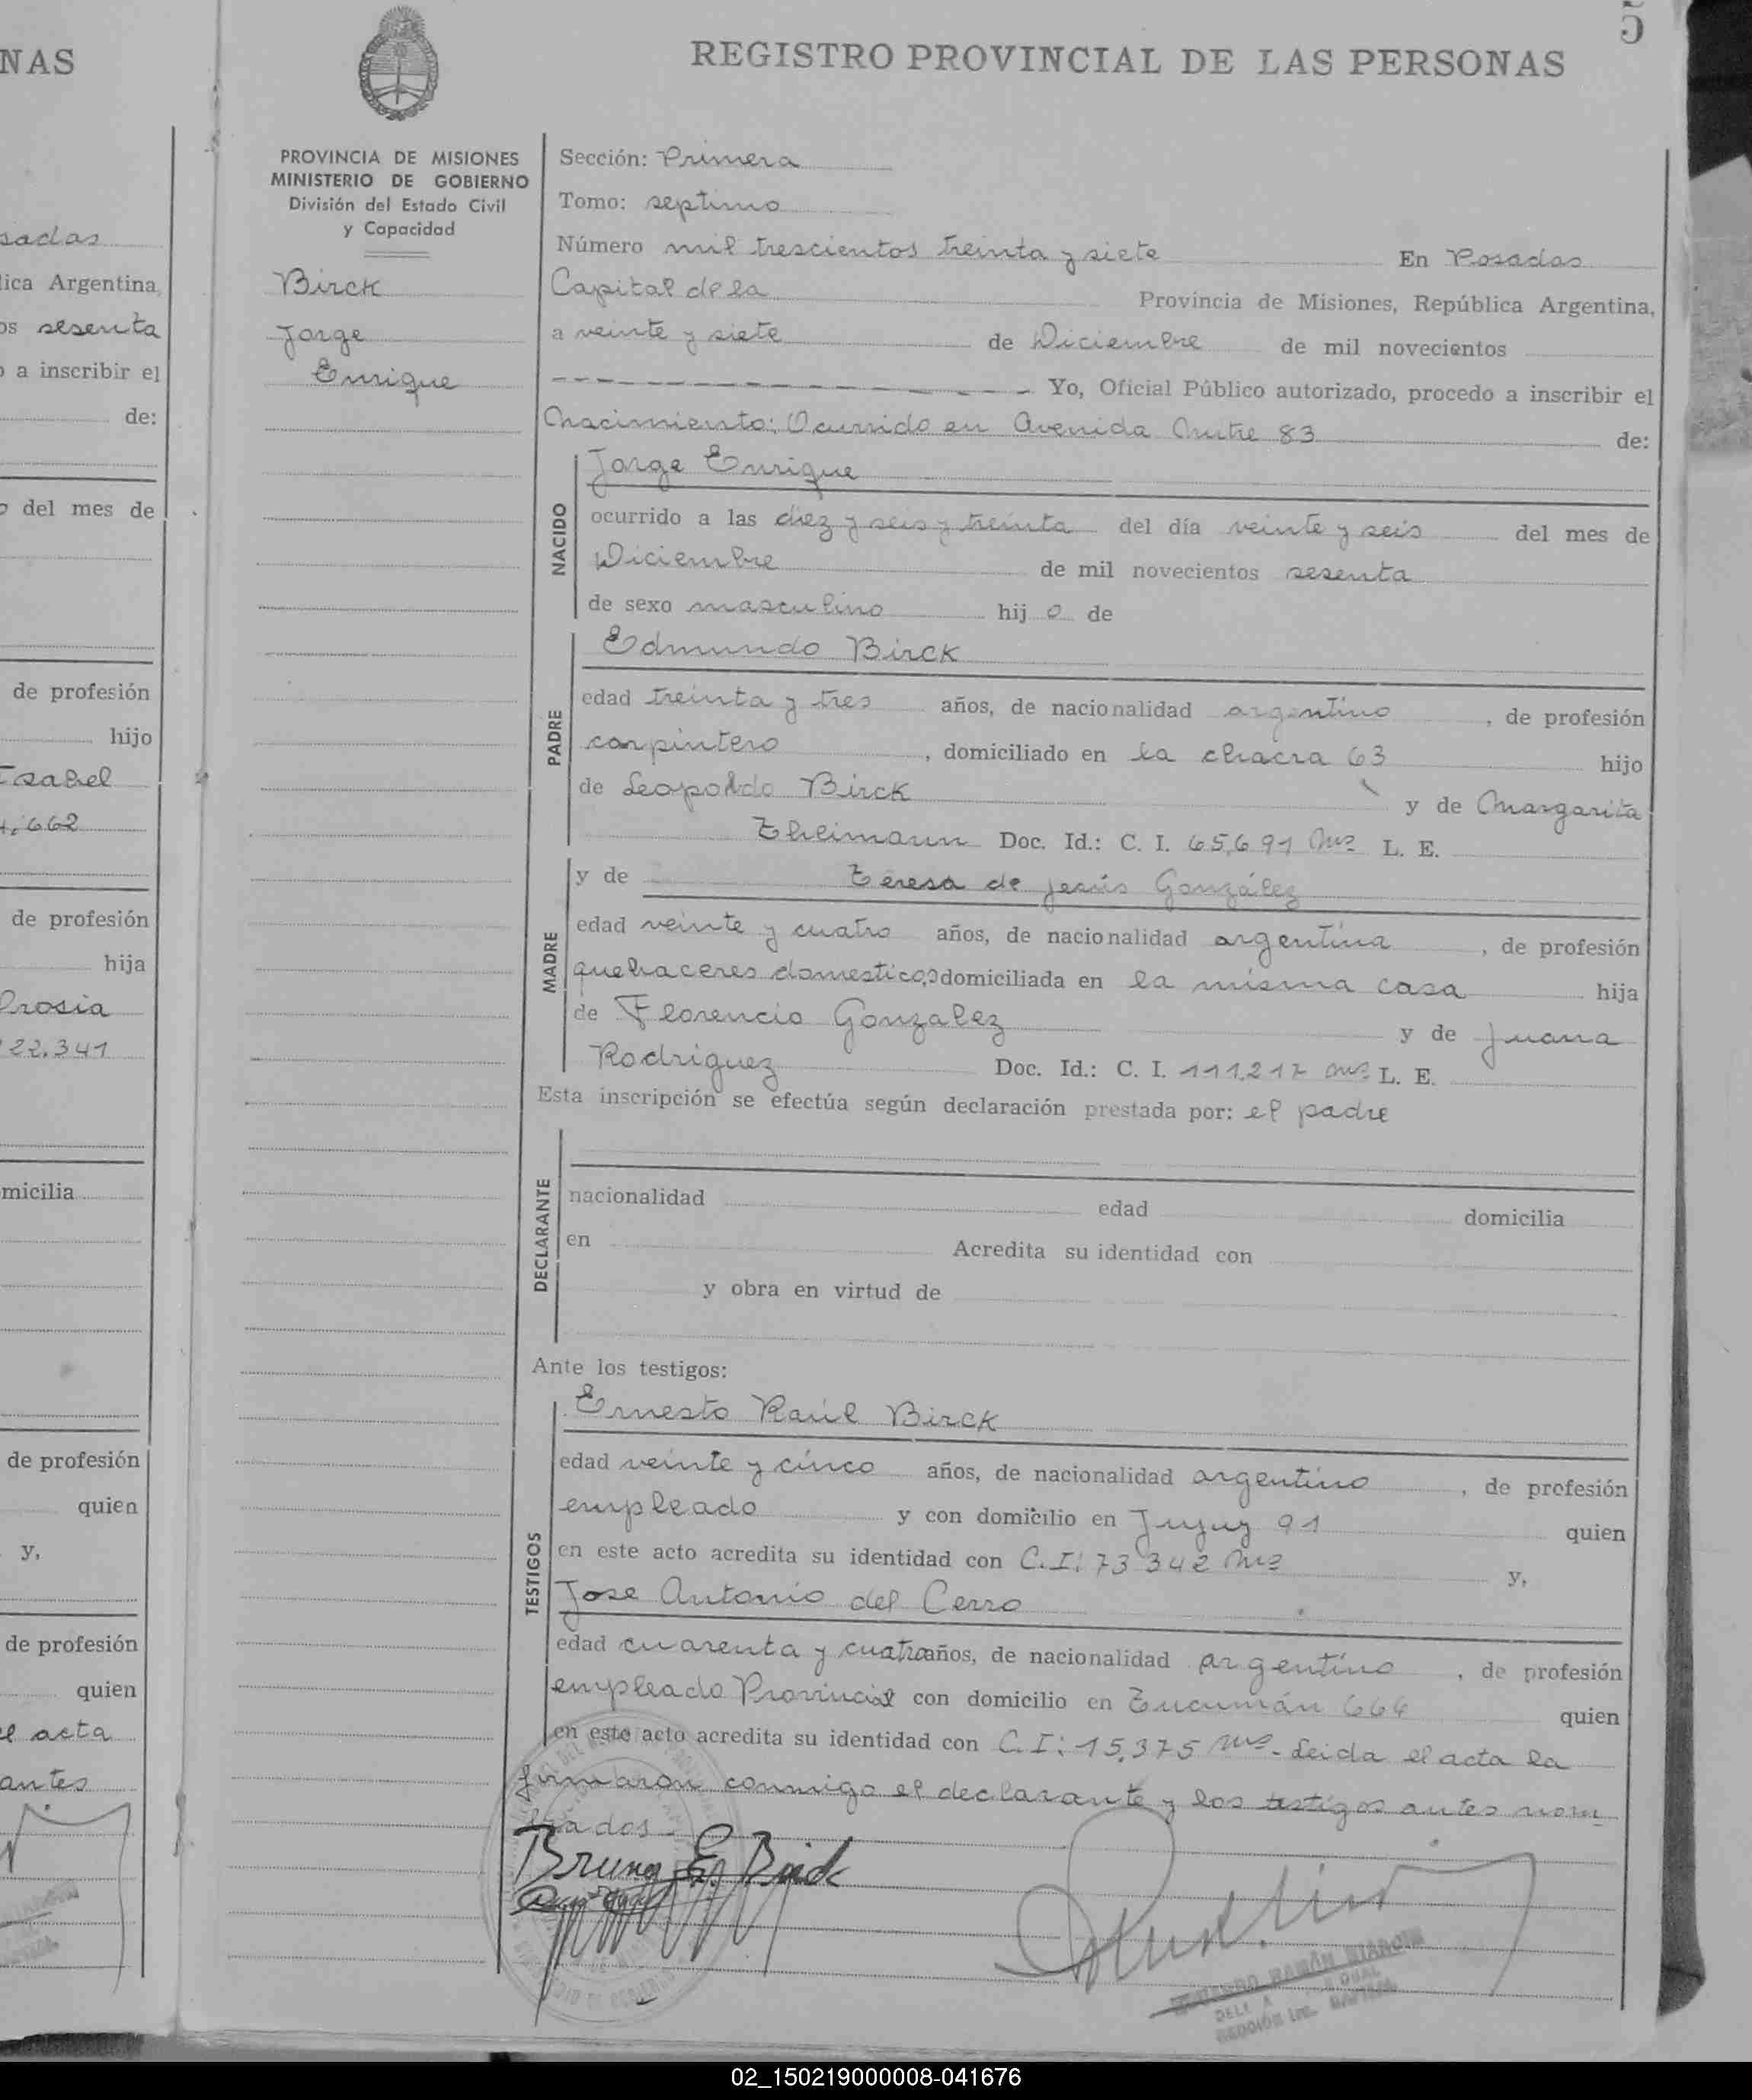 5
NAS
REGISTRO PROVINCIAL DE LAS PERSONAS
PROVINCIA DE MISIONES
MINISTERIO DE GOBIERNO
División del Estado Civil
y Capacidad
Birck
Jorge
Enrique
sadas
lica Argentina,
os sesenta
o a inscribir el
de:
o del mes de
de profesión
hijo
Isabel
4.662
de profesión
hija
brosia
122.341
micilia
de profesión
quien
y,
de profesión
quien
el acta
antes
Sección: Primera
Tomo: septimo
Número mil trescientos treinta y siete En Posadas
Capital de la Provincia de Misiones, República Argentina,
a veinte y siete de Diciembre de mil novecientos
Yo, Oficial Público autorizado, procedo a inscribir el
Nacimiento: Ocurrido en Avenida Mitre 83 de:
NACIDO
Jorge Enrique
ocurrido a las diez y seis y treinta del día veinte y seis del mes de
Diciembre de mil novecientos sesenta
de sexo masculino hij o de
PADRE
Edmundo Birck
edad treinta y tres años, de nacionalidad argentino, de profesión
carpintero, domiciliado en la chacra 63 hijo
de Leopoldo Birck y de Margarita
Theimann Doc. Id.: C. I. 65.691 Mnes L. E.
MADRE
y de Teresa de Jesús González
edad veinte y cuatro años, de nacionalidad argentina, de profesión
quehaceres domesticos, domiciliada en la misma casa hija
de Florencio Gonzalez y de Juana
Rodriguez Doc. Id.: C. I. 111.217 Mnes L. E.
Esta inscripción se efectúa según declaración prestada por: el padre
DECLARANTE
nacionalidad edad domicilia
en Acredita su identidad con
y obra en virtud de
Ante los testigos:
TESTIGOS
Ernesto Raúl Birck
edad veinte y cinco años, de nacionalidad argentino, de profesión
empleado y con domicilio en Jujuy 91 quien
en este acto acredita su identidad con C.I: 73342 Mnes y,
Jose Antonio del Cerro
edad cuarenta y cuatro años, de nacionalidad argentino, de profesión
empleado Provincial con domicilio en Tucumán 664 quien
en este acto acredita su identidad con C.I: 15.375 Mns. Leida el acta la
firmaron conmigo el declarante y los testigos antes nom
brados.
Bruno E. Birck
RAMÓN
02_150219000008-041676